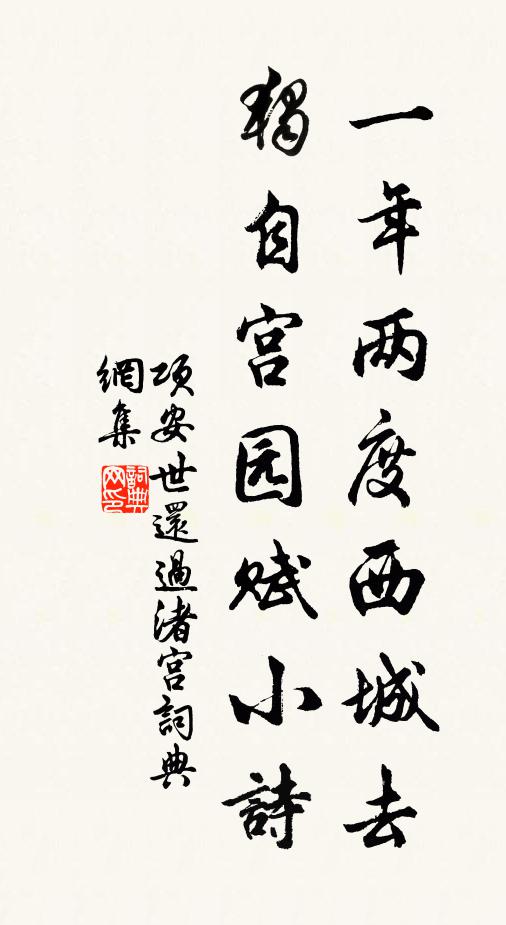 一年两度西城去
獨自宫园赋小詩
項安世還過渚宮詞典
網集
詞典
网印